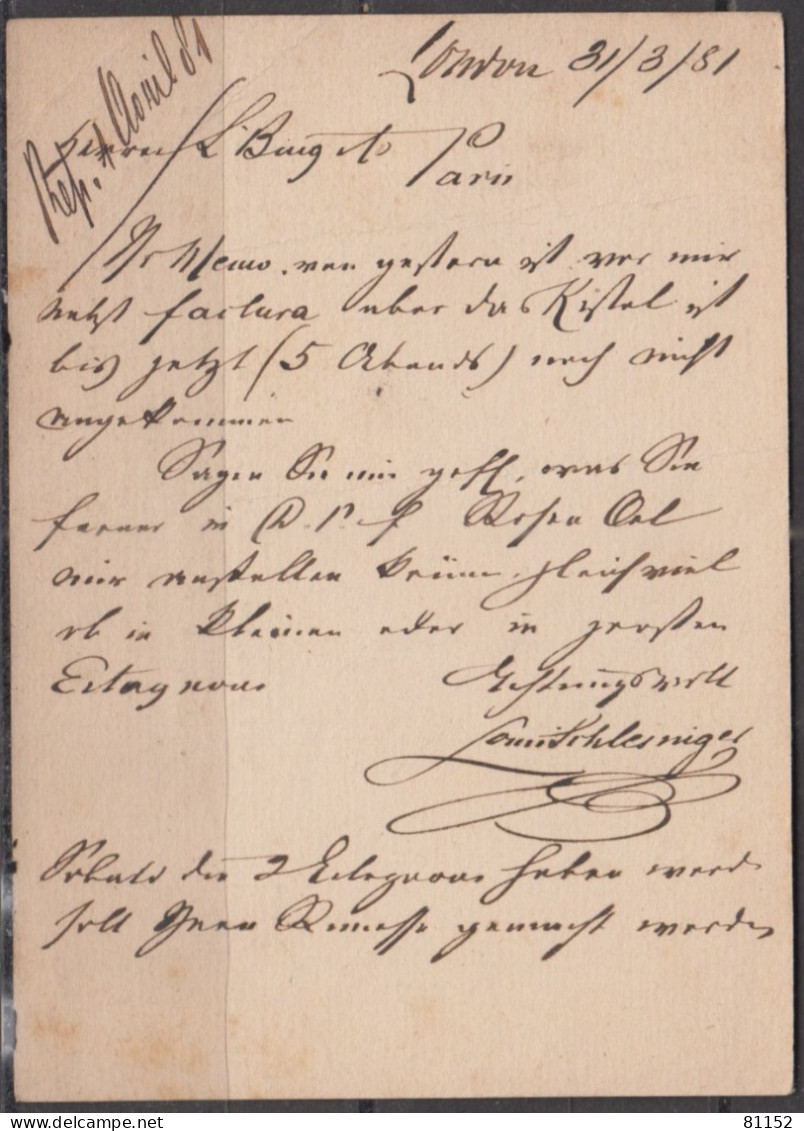 London 31/3/81
Rep. 1 April 81
Herren L Bing & Co
Paris
Ihr Memo von gestern ist vor mir
nebst factura aber das Kistel ist
bis jetzt (5 Abends) noch nicht
angekommen
Sagen Sie mir gefl. was Sie
ferner in Rosen Oel
mir anstellen können, gleichviel
ob in kleinen oder in grossen
Estagnons Achtungsvoll
Louis Schlesinger
Sobald die 2 Estagnons haben werde
soll Ihnen Rimesse gemacht werden
81152